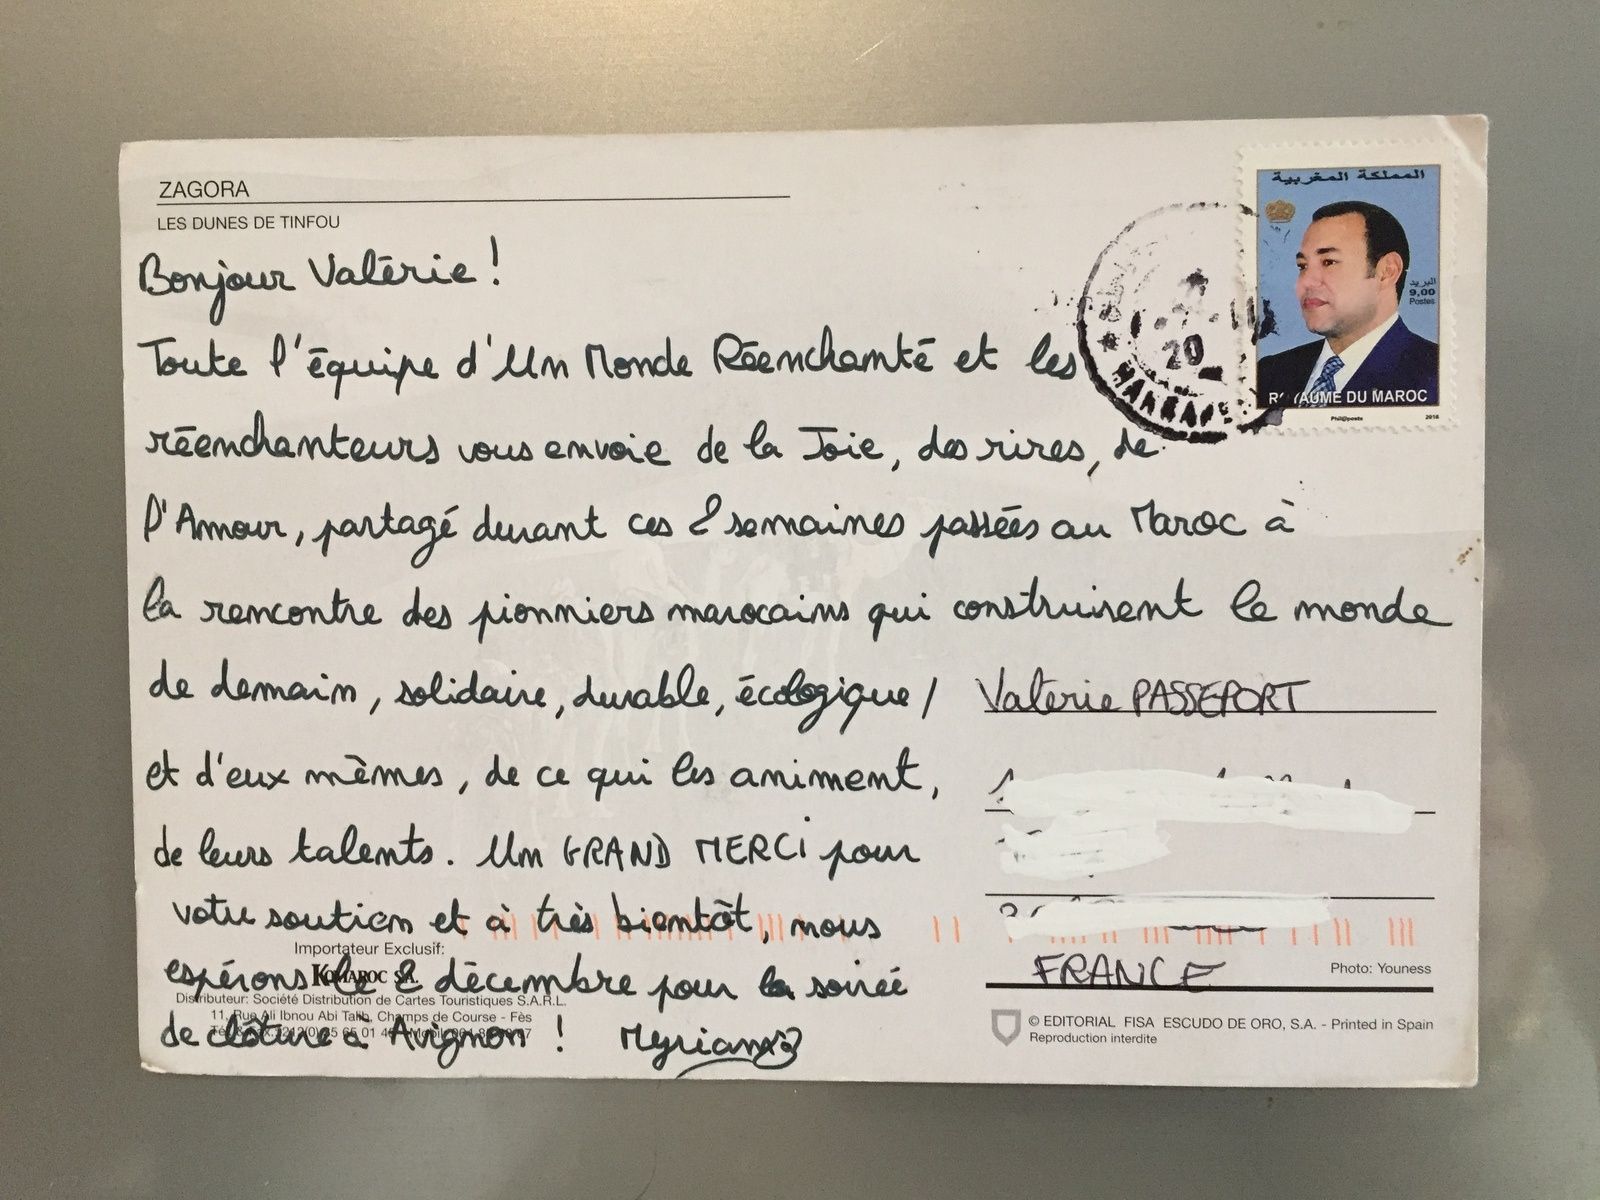 ZAGORA
LES DUNES DE TINFOU
Bonjour Valérie !
Toute l'équipe d'Un Monde Réenchanté et les
réenchanteurs vous envoie de la Joie, des rires, de
l'Amour, partagé durant ces 2 semaines passées au Maroc à
la rencontre des pionniers marocains qui construisent le monde
de demain, solidaire, durable, écologique /
et d'eux mêmes, de ce qui les animent,
de leurs talents. Un GRAND MERCi pour
votre soutien et à très bientôt, nous
espérons le 2 décembre pour la soirée
de clôture à Avignon ! Myriam
Importateur Exclusif:
KOMAROC S.A.
Distributeur: Société Distribution de Cartes Touristiques S.A.R.L.
11, Rue Ali Ibnou Abi Talib, Champs de Course - Fès
المملكة المغربية
البريد
9,00
Postes
ROYAUME DU MAROC
Phil@poste
20
Valerie PASSEPORT
FRANCE
Photo: Youness
© EDITORIAL FISA ESCUDO DE ORO, S.A. - Printed in Spain
Reproduction interdite